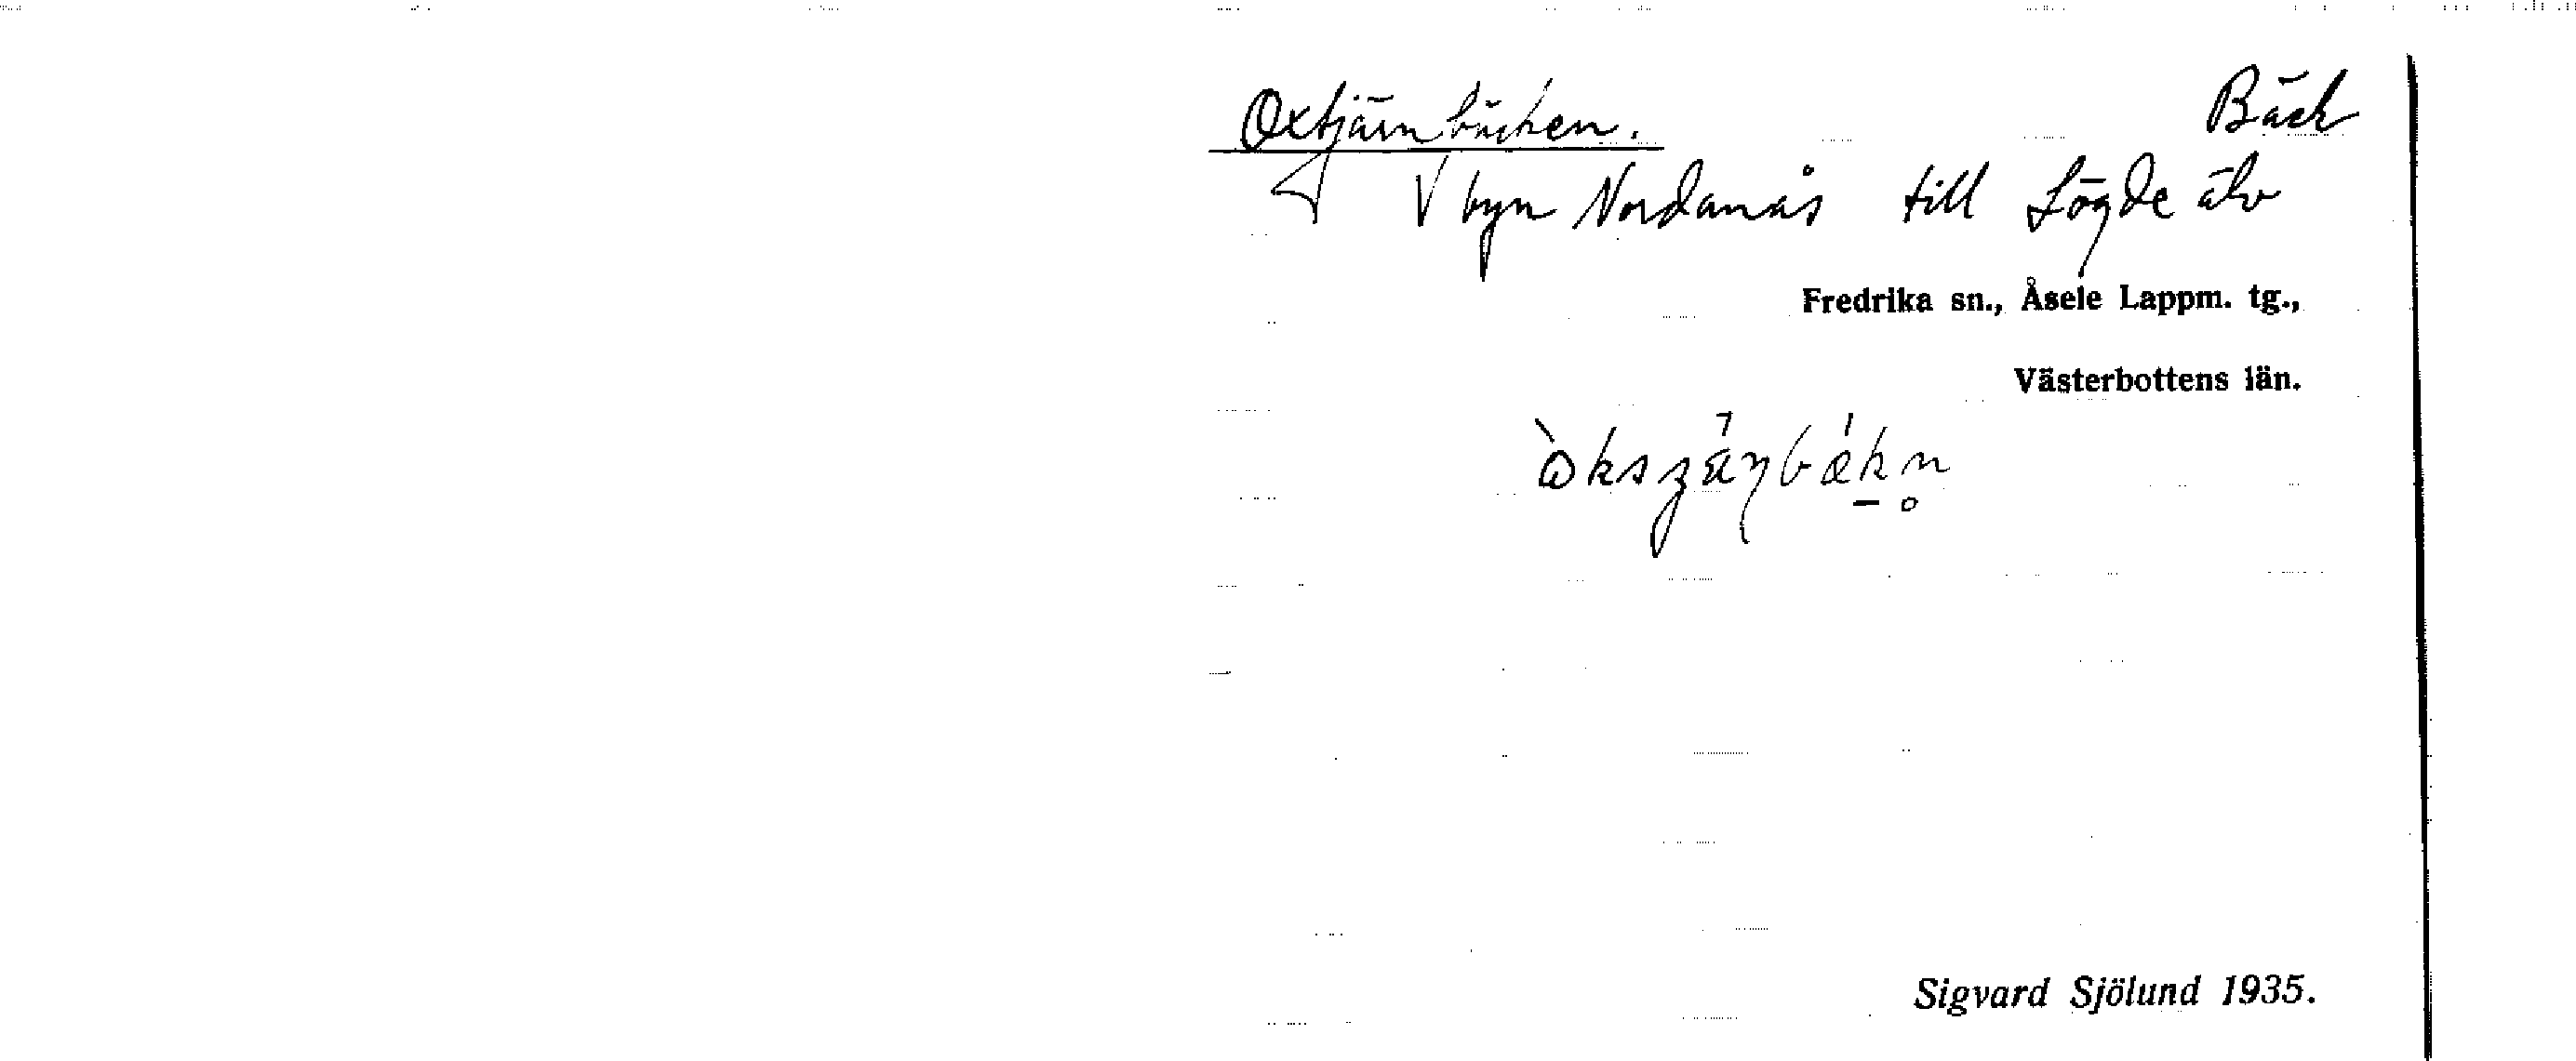 Oxtjärnbäcken. Bäck
V byn Nordanås till Lögde älv
Fredrika sn., Åsele Lappm. tg.,
Västerbottens län.
Sigvard Sjölund 1935.